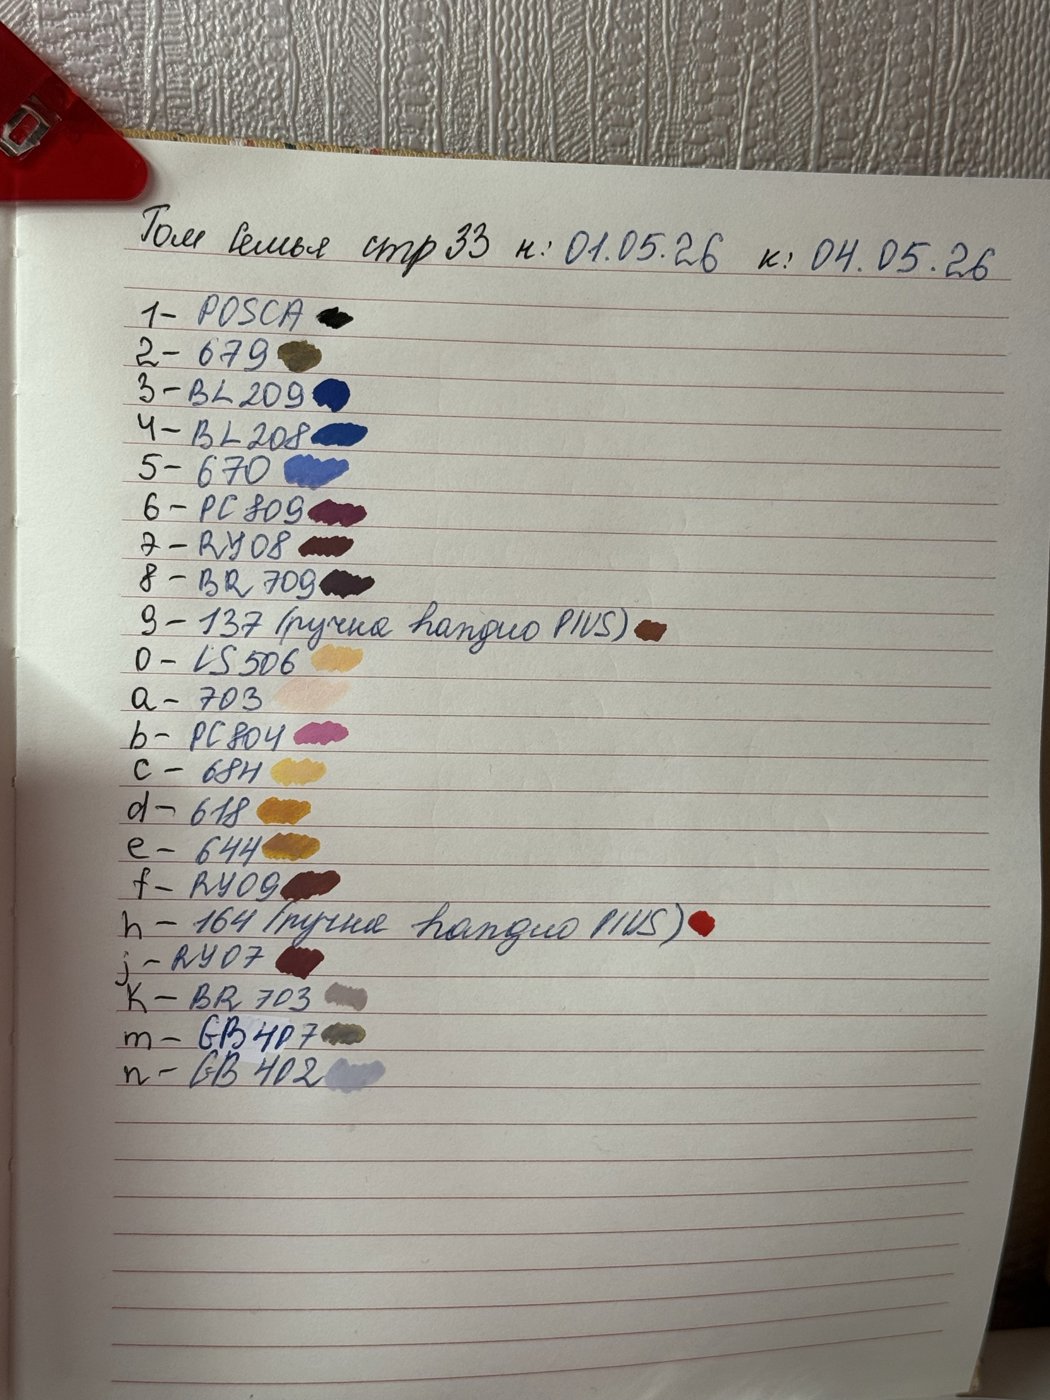 Том Семья стр 33 н: 01.05.26 к: 04.05.26
1- POSCA
2- 679
3- BL209
4- BL208
5- 670
6- PC809
7- RY08
8- BR 709
9- 137 (ручка хандио PlUS)
0- LS506
a- 703
b- PC804
c- 684
d- 618
e- 644
f- RY09
h- 164 (ручка хандио PlUS)
j- RY07
k- BR 703
m- GB407
n- GB 402